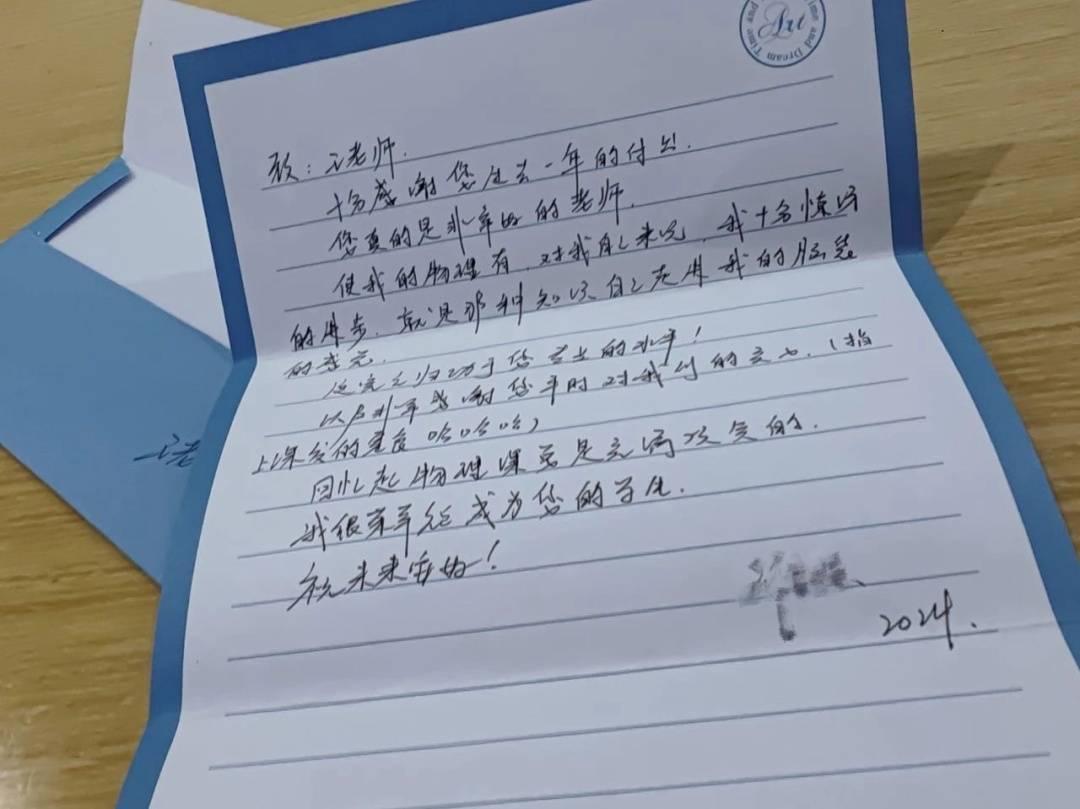 Time and Dream Art Time and
致：王老师.
十分感谢您过去一年的付出.
您真的是非常好的老师.
使我的物理有，对我自己来说，我十分惊讶
的进步，就是那种知识自己走进我的脑袋
的感觉.
这完全归功于您的水平！
以及非常感谢您平时对我付的关心，（指
上课发的零食哈哈哈）
回忆起物理课总是充满欢笑的.
我很荣幸能成为您的学生.
祝未来安好！
2024.
王老